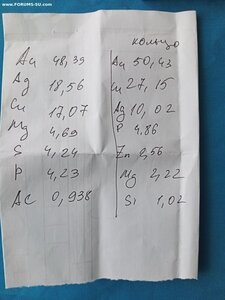 www.FORUMS-SU.com
кольцо
Au 48,39
Ag 18,56
Cu 17,07
Mg 4,69
S 4,24
P 4,23
Ac 0,938
Au 50,43
Cu 27,15
Ag 10,02
P 4,86
Zn 2,56
Mg 2,22
Si 1,02